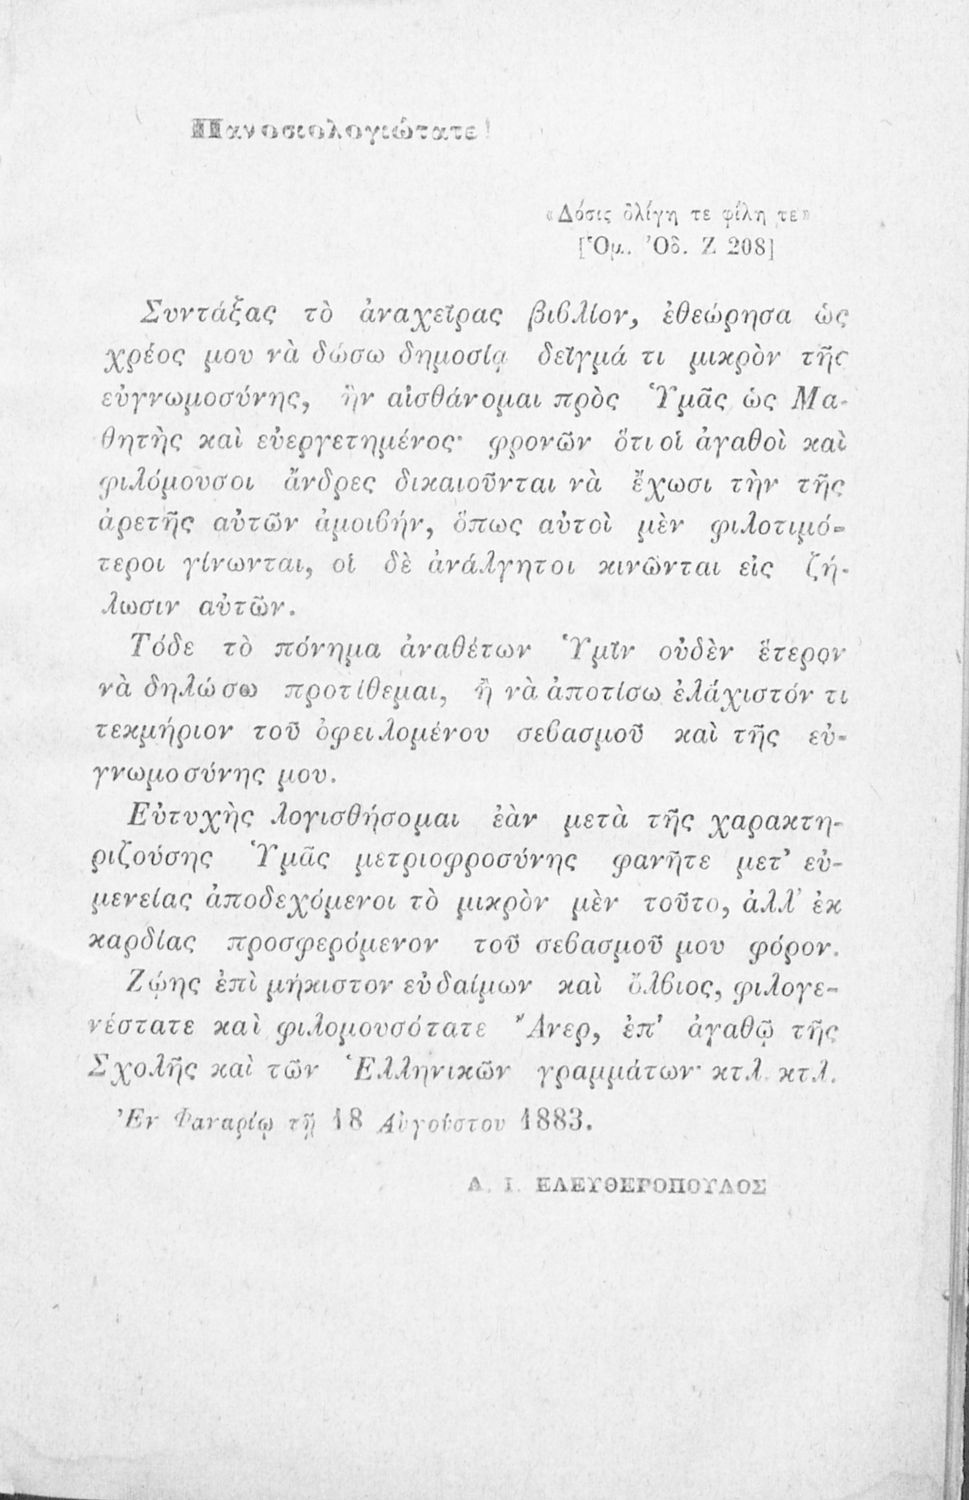 Πανοσιολογιώτατε!
«Δόσις ὀλίγη τε φίλη τε»
[Ὁμ. Ὀδ. Ζ 208]
Συντάξας τὸ ἀναχεῖρας βιβλίον, ἐθεώρησα ὡς
χρέος μου νὰ δώσω δημοσίᾳ δεῖγμά τι μικρὸν τῆς
εὐγνωμοσύνης, ἣν αἰσθάνομαι πρὸς Ὑμᾶς ὡς Μα-
θητὴς καὶ εὐεργετημένος· φρονῶν ὅτι οἱ ἀγαθοὶ καὶ
φιλόμουσοι ἄνδρες δικαιοῦνται νὰ ἔχωσι τὴν τῆς
ἀρετῆς αὐτῶν ἀμοιβήν, ὅπως αὐτοὶ μὲν φιλοτιμό-
τεροι γίνωνται, οἱ δὲ ἀνάλγητοι κινῶνται εἰς ζή-
λωσιν αὐτῶν.
Τόδε τὸ πόνημα ἀναθέτων Ὑμῖν οὐδὲν ἕτερον
νὰ δηλώσω προτίθεμαι, ἢ νὰ ἀποτίσω ἐλάχιστόν τι
τεκμήριον τοῦ ὀφειλομένου σεβασμοῦ καὶ τῆς εὐ-
γνωμοσύνης μου.
Εὐτυχὴς λογισθήσομαι ἐὰν μετὰ τῆς χαρακτη-
ριζούσης Ὑμᾶς μετριοφροσύνης φανῆτε μετ’ εὐ-
μενείας ἀποδεχόμενοι τὸ μικρὸν μὲν τοῦτο, ἀλλ’ ἐκ
καρδίας προσφερόμενον τοῦ σεβασμοῦ μου φόρον.
Ζῴης ἐπὶ μήκιστον εὐδαίμων καὶ ὄλβιος, φιλογε-
νέστατε καὶ φιλομουσότατε Ἄνερ, ἐπ’ ἀγαθῷ τῆς
Σχολῆς καὶ τῶν Ἑλληνικῶν γραμμάτων· κτλ. κτλ.
Ἐν Φαναρίῳ τῇ 18 Αὐγούστου 1883.
Α. Ι. ΕΛΕΥΘΕΡΟΠΟΥΛΟΣ